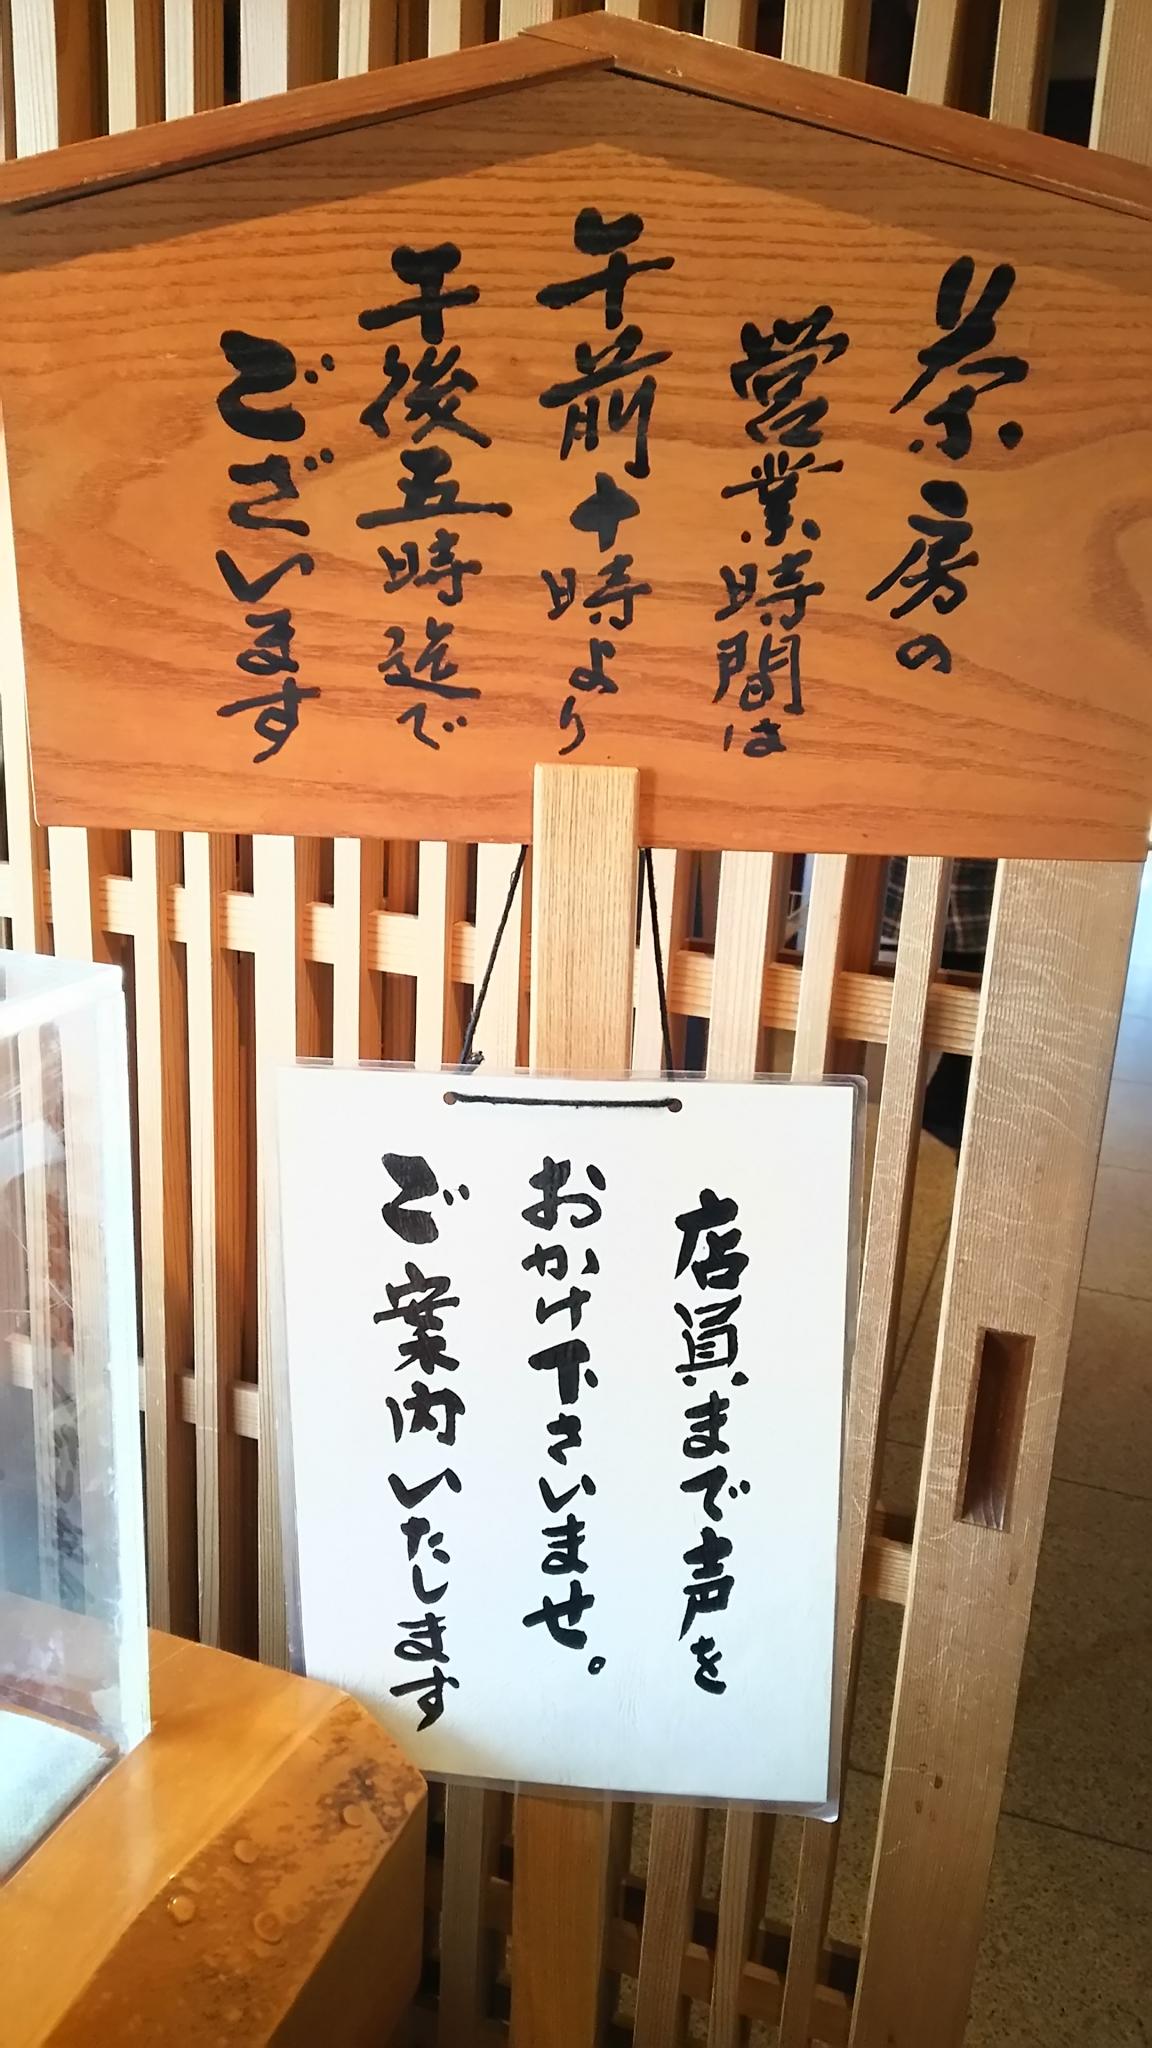 茶房の
営業時間は
午前十時より
午後五時迄で
ございます
店員まで声を
おかけ下さいませ。
ご案内いたします